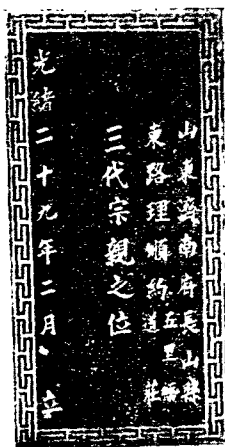 山東濟南府長山縣
東路理順約五里
道莊
三代宗親之位
光緒二十九年二月 立